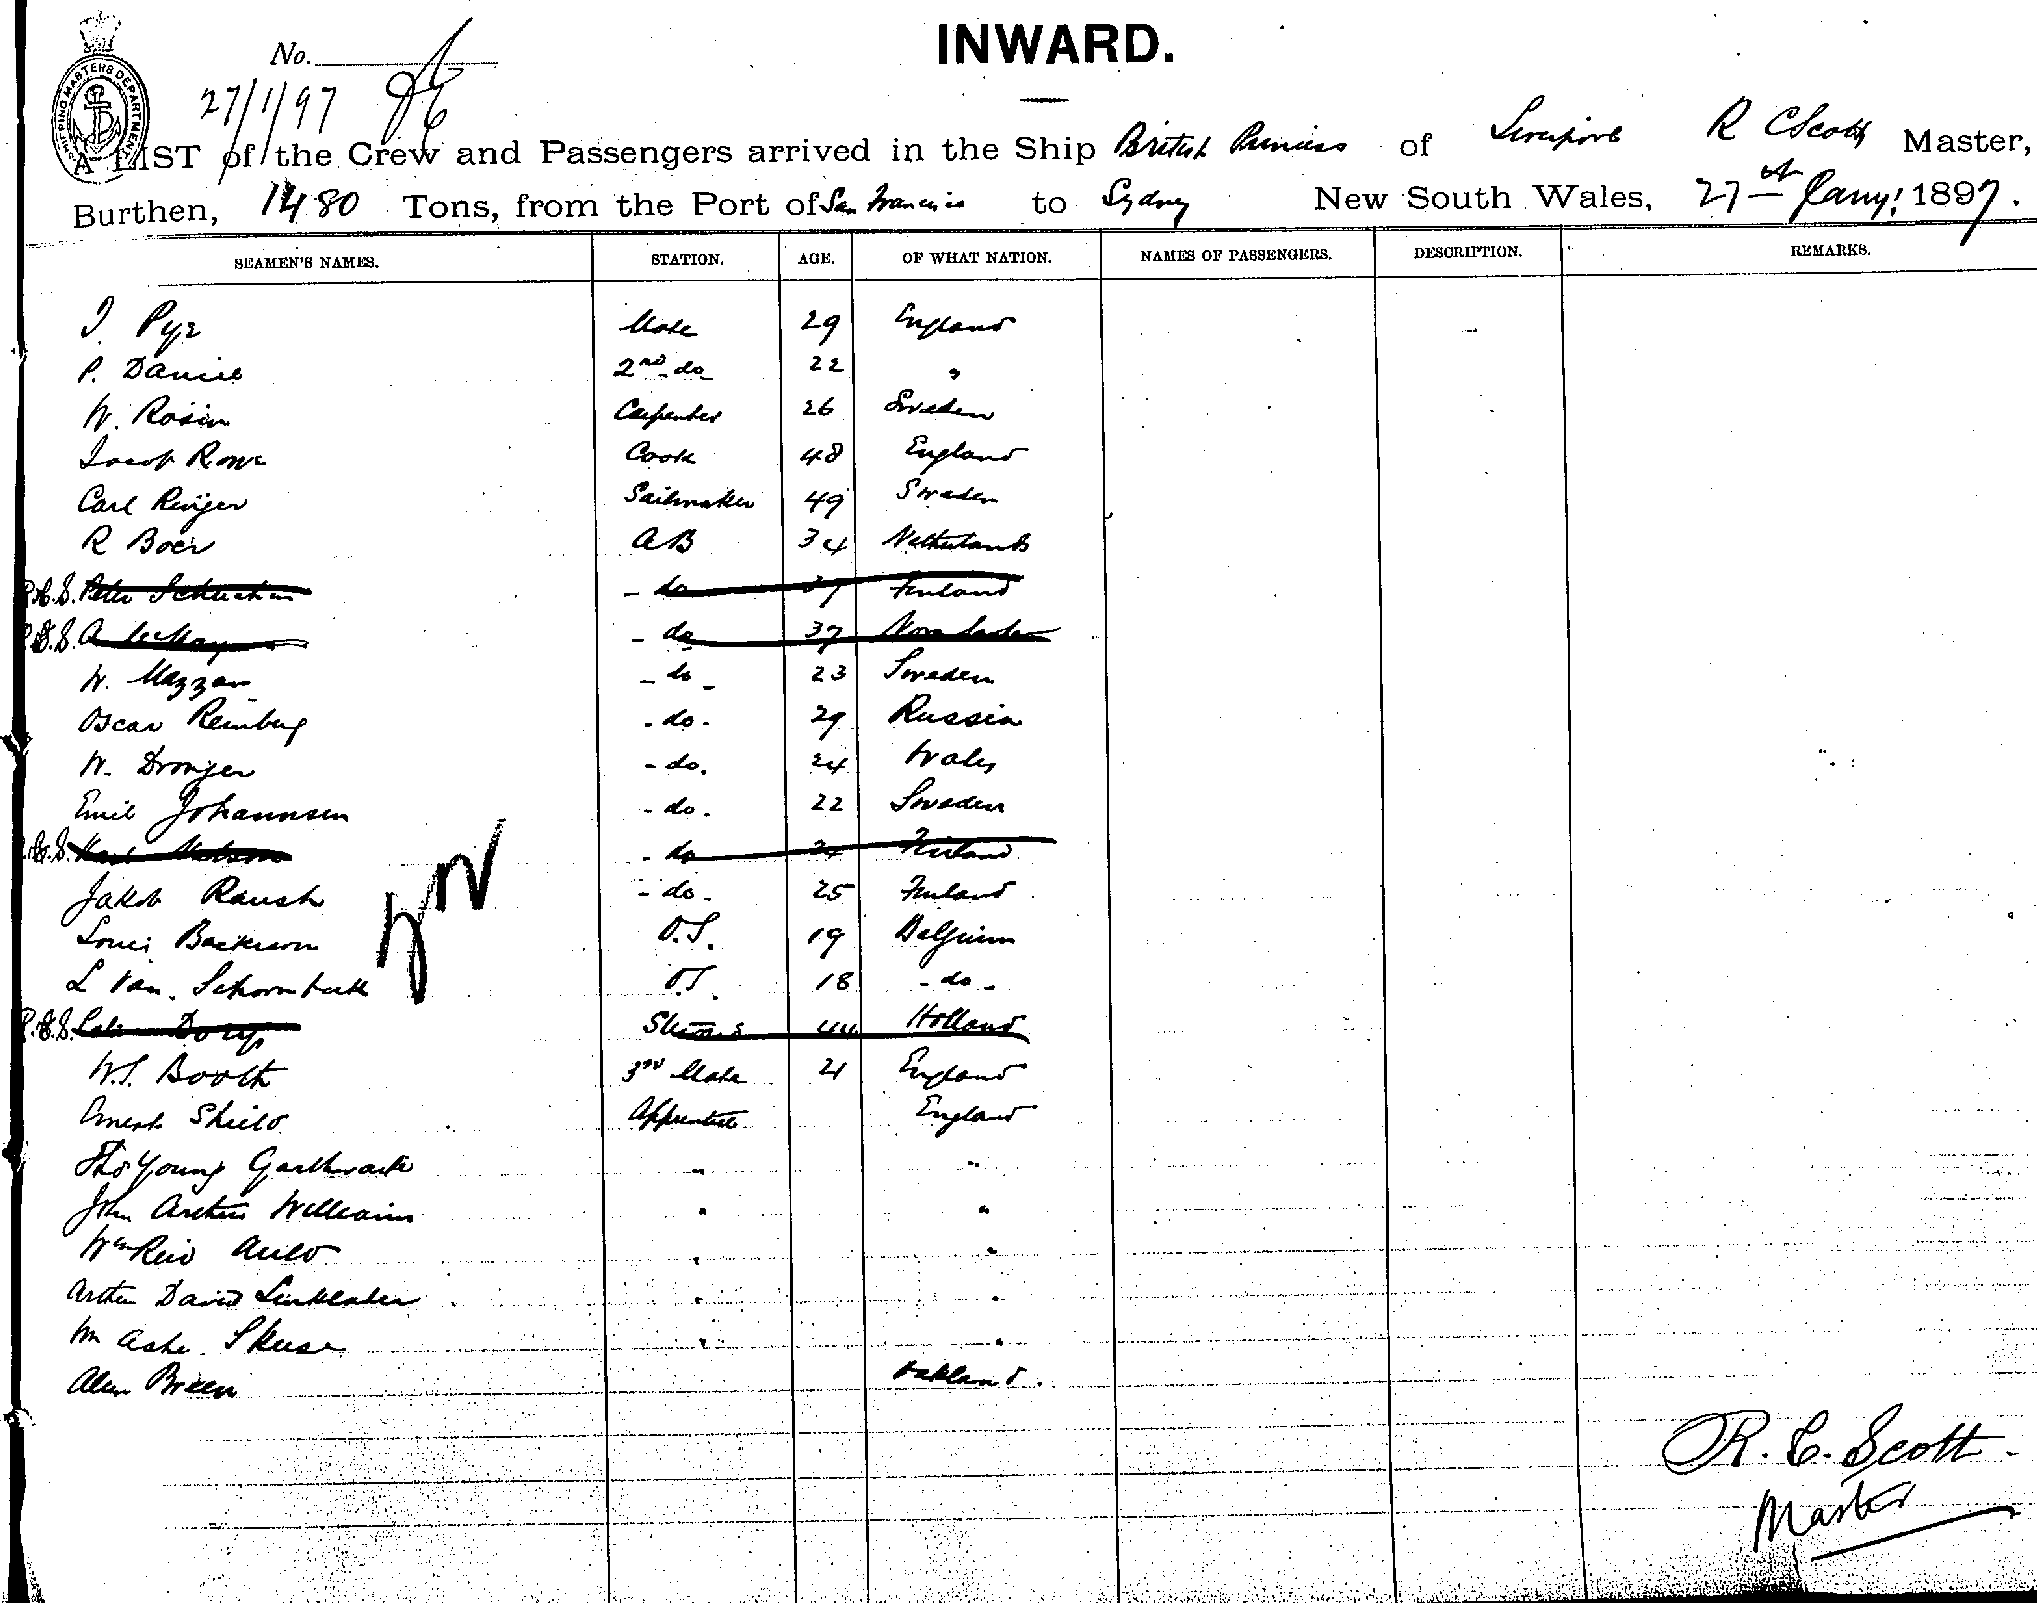 No.
INWARD.
27/1/97
SHIPPING MASTERS DEPARTMENT
A LIST of the Crew and Passengers arrived in the Ship British Princess of Liverpool R C Scott Master,
Burthen, 1480 Tons, from the Port of San Francisco to Sydney New South Wales, 27th Jany! 1897.
SEAMEN'S NAMES. STATION. AGE. OF WHAT NATION. NAMES OF PASSENGERS. DESCRIPTION. REMARKS.
J. Pye Mate 29 England
P. Daniel 2nd do 22 "
W. Rosin Carpenter 26 Sweden
Jacob Rowe Cook 48 England
Carl Reijer Sailmaker 49 Sweden
R Boer AB 34 Netherlands
Peter - do 37 Finland
A - do 37
W. Mazzar - do - 23 Sweden
Oscar Reinberg - do - 29 Russia
W. Dronjer - do. 24 Wales
Emil Johannsen - do. 22 Sweden
- do 24 Finland
Jakob Raush - do. 25 Finland
Louis Backeroon O.S. 19 Belgium
L Van. Schoornbeek O.S. 18 - do -
Dorp 44 Holland
W.S. Booth 3rd Mate 21 England
Ernest Shield Apprentice England
Thos Young Garthwaite " "
John Arthur Williams " "
Wm Reid Auld " "
Arthur David Linklater " "
Wm Ashe Skuse " "
Alex Breen Oakland.
R. C. Scott
Master